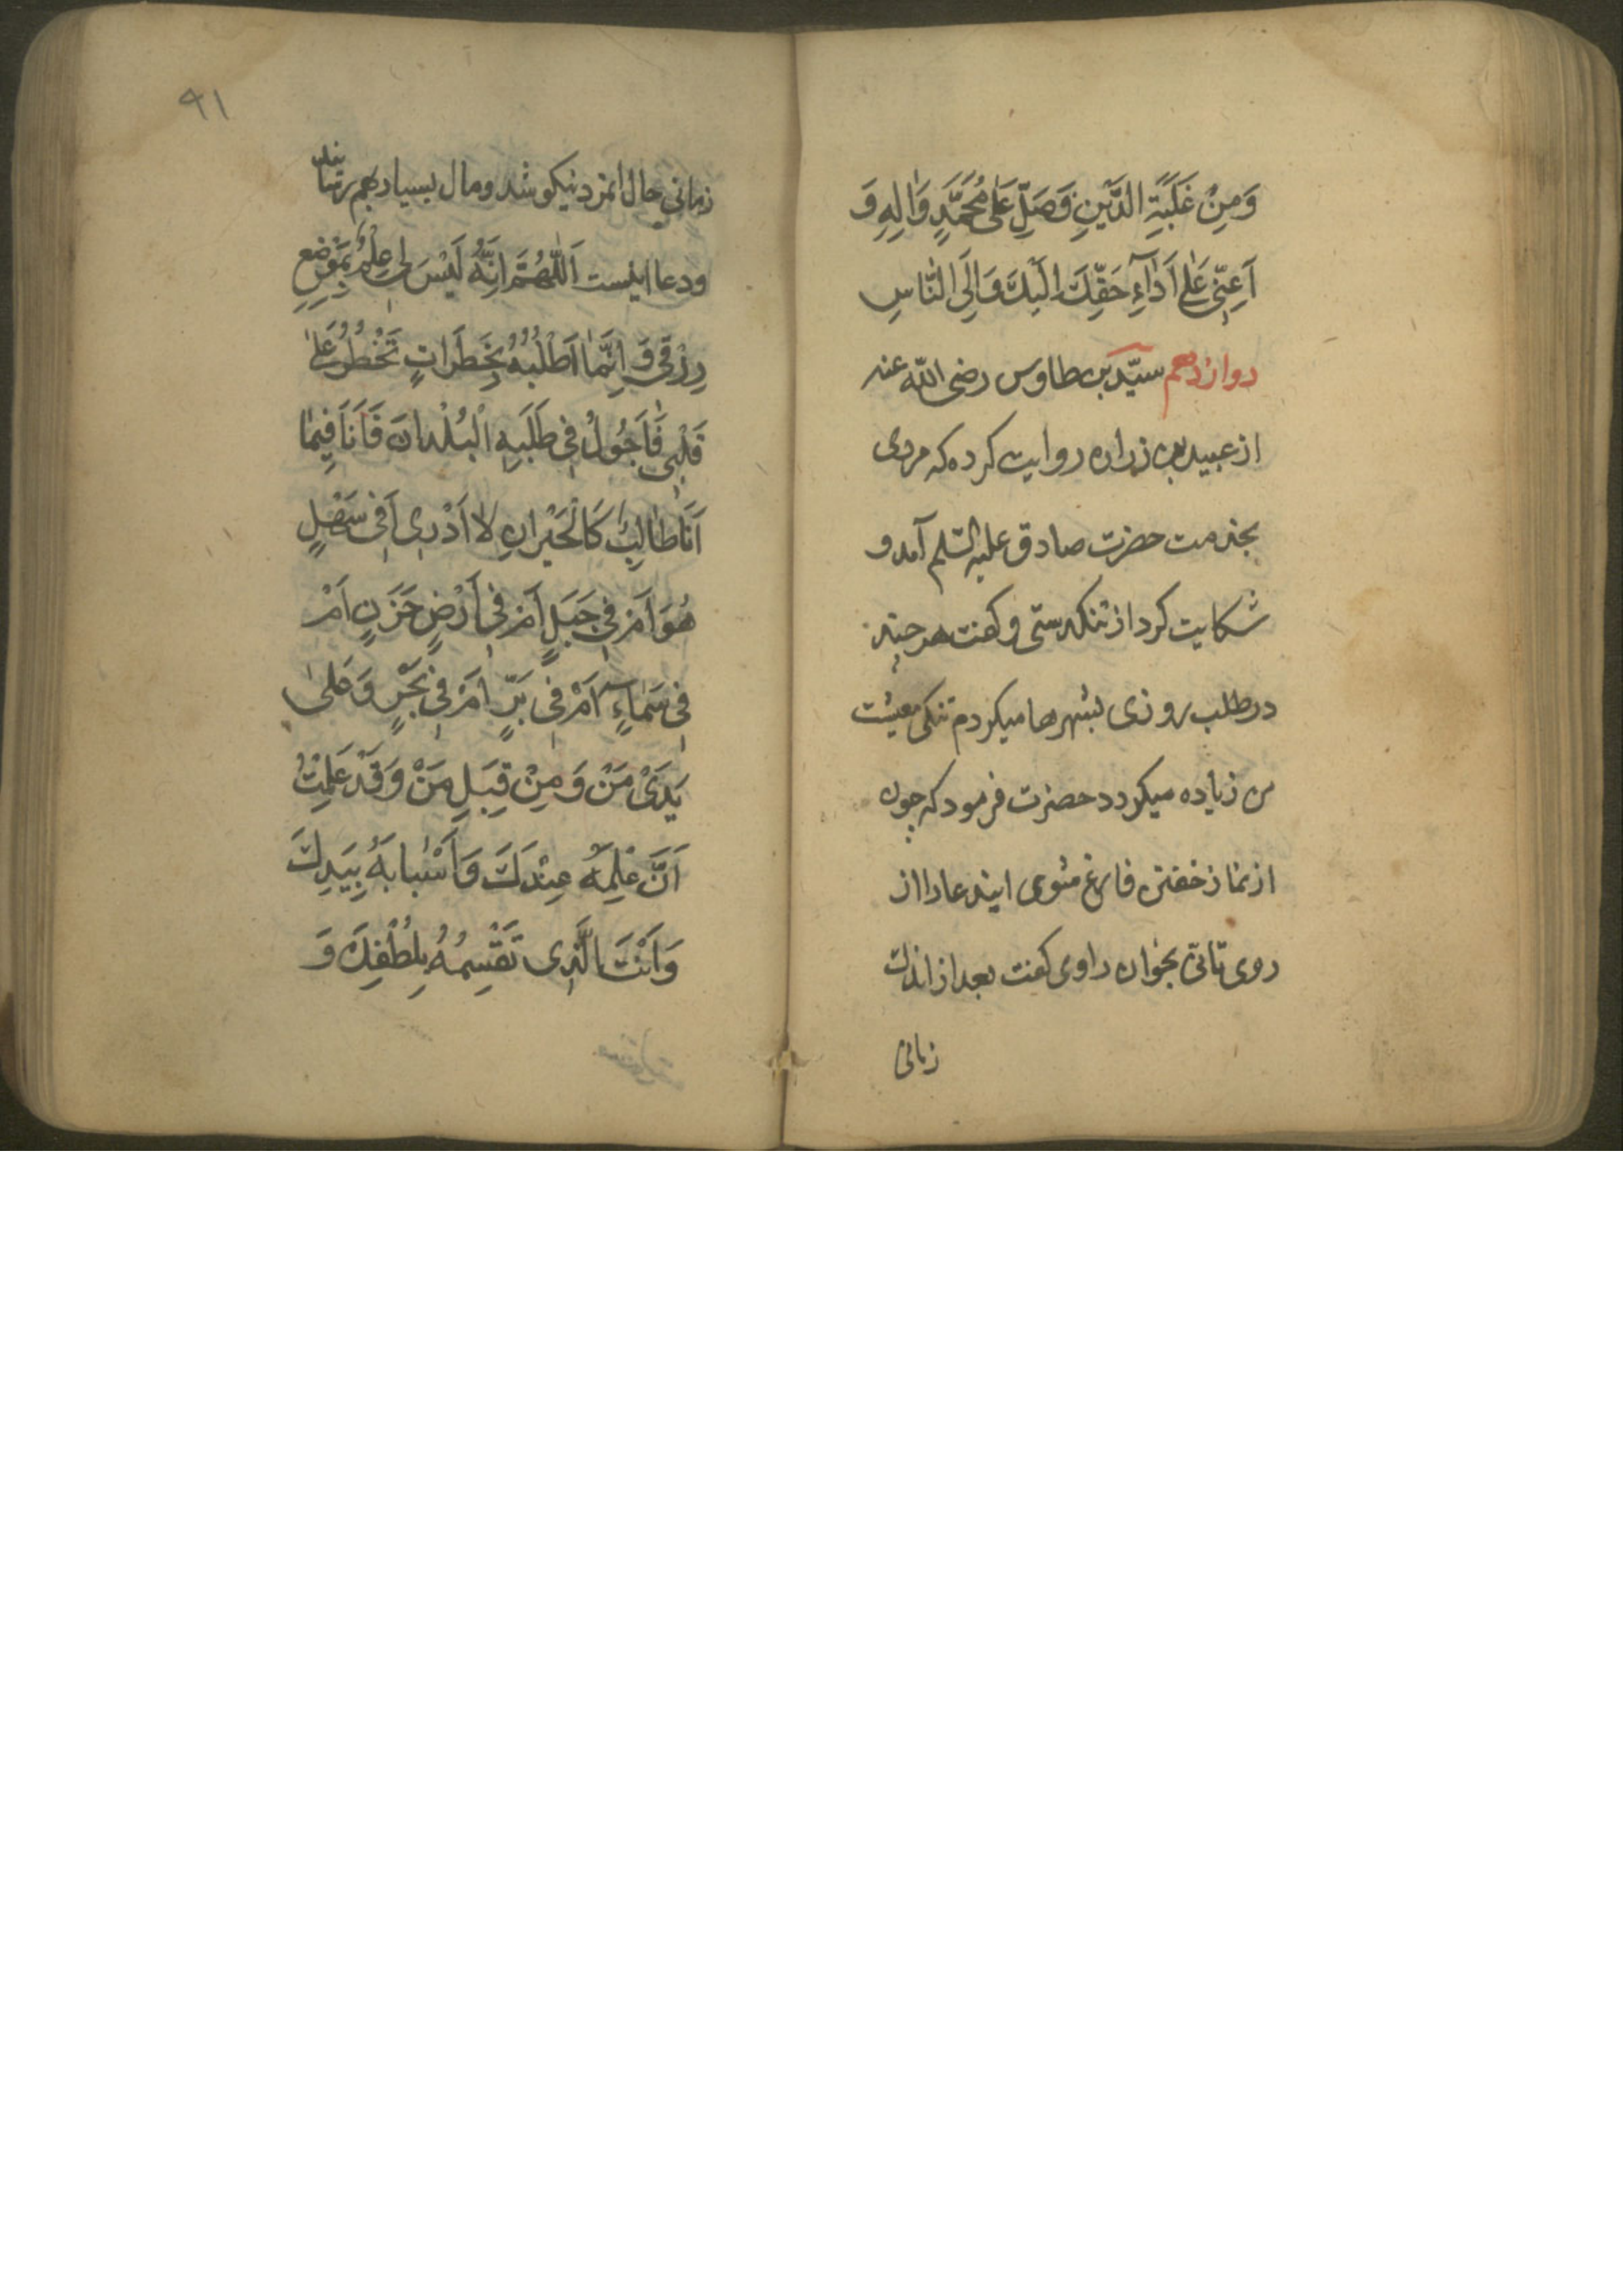 وَمِنْ غَلَبَةِ الدَّيْنِ وَصَلِّ عَلىٰ مُحَمَّدٍ وَاٰلِهِ وَ
اَعِنّى عَلىٰ اَدٰآءِ حَقِّكَ اِلَيْكَ وَاِلَى النّٰاسِ
دوازدهم سيّد بن طاوس رضى الله عنه
از عبيد بن زراره روايت كرده كه مردى
بخدمت حضرت صادق عليه السّلم آمد و
شكايت كرد از تنكدستى و كفت هر چند
در طلب روزى بشهرها ميكردم تنكى معيشت
من زياده ميكردد حضرت فرمود كه چون
از نماز خفتن فارغ شوى ايندعا را از
روى تانّى بخوان راوى كفت بعد از اندك
زمانى
٩١
زمانى حال انمرد نيكو شد و مال بسيار بهم رسانيد
و دعا اينست اَللّٰهُمَّ اِنَّهُ لَيْسَ لى عِلْمٌ بِمَوْضِعِ
رِزْقى وَ اِنَّمٰا اَطْلُبُهُ بِخَطَرٰاتٍ تَخْطُرُ عَلىٰ
قَلْبى فَاَجُولُ فى طَلَبِهِ الْبُلْدٰانَ فَاَنَا فِيمٰا
اَنَا طٰالِبٌ كَالْحَيْرٰانِ لاٰ اَدْرى اَفى سَهْلٍ
هُوَ اَمْ فى جَبَلٍ اَمْ فى اَرْضٍ حَزَنٍ اَمْ
فى سَمٰاءٍ اَمْ فى بَرٍّ اَمْ فى بَحْرٍ وَ عَلىٰ
يَدَىْ مَنْ وَ مِنْ قِبَلِ مَنْ وَ قَدْ عَلِمْتُ
اَنَّ عِلْمَهُ عِنْدَكَ وَ اَسْبٰابَهُ بِيَدِكَ
وَ اَنْتَ الَّذى تَقْسِمُهُ بِلُطْفِكَ وَ